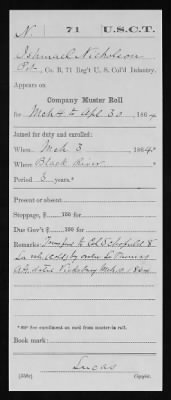 N. 71 U.S.C.T.
Ishmael Nicholson
Pvt., Co. B, 71 Reg't U. S. Col'd Infantry.
Appears on
Company Muster Roll
for Mch 4 to Apl 30, 1864
Joined for duty and enrolled:
When Mch 3, 1864*
Where Black River
Period 3 years.*
Present or absent
Stoppage, $ 100 for
Due Gov't $ 100 for
Remarks: Transf'd to Co.
by order
dated Vicksburg Mch
* See enrollment on card from muster-in roll.
Book mark:
Lucas
(358c) Copyist.